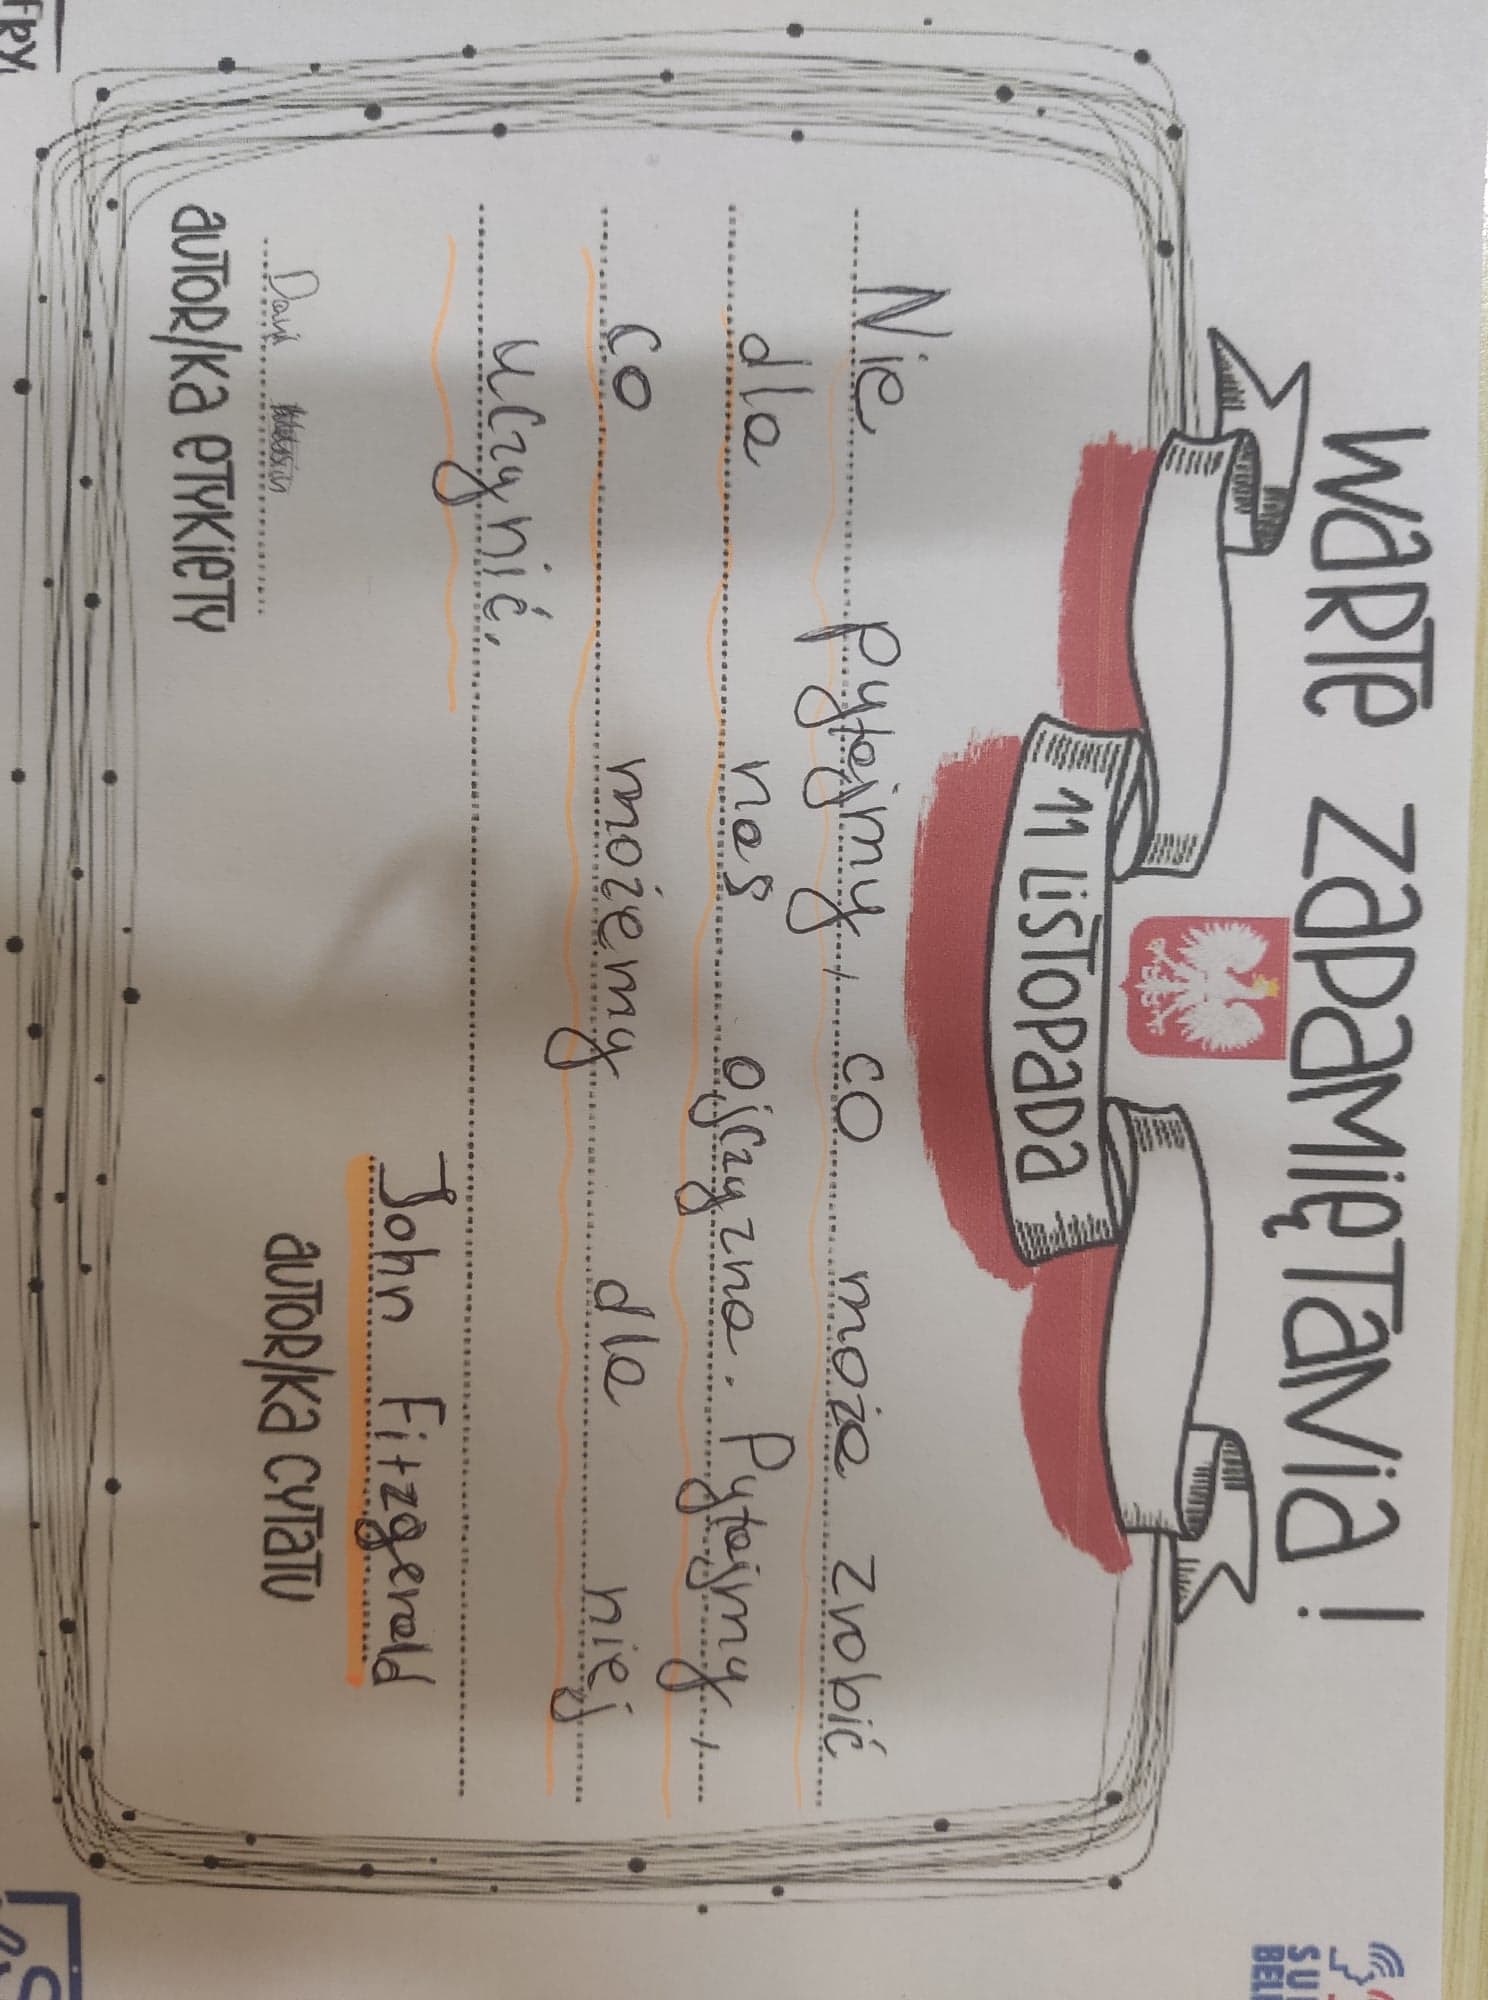 WARTE ZAPAMIĘTANIA!
11 LISTOPADA
Nie pytajmy, co może zrobić
dla nas ojczyzna. Pytajmy,
co możemy dla niej
uczynić.
John Fitzgerald
AUTOR/KA CYTATU
AUTOR/KA ETYKIETY